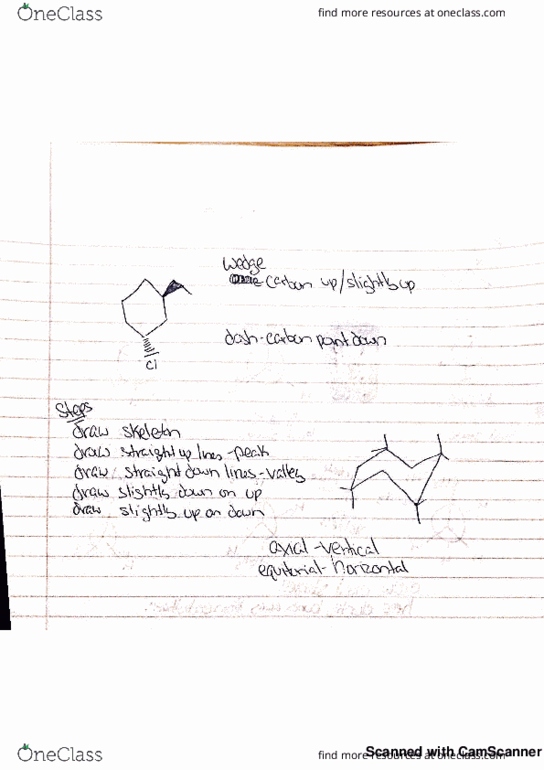 OneClass
find more resources at oneclass.com
wedge
carbon up/slightly up
dash-carbon point down
Cl
Steps
draw skeleton
draw straight up lines -peak
draw straight down lines -valley
draw slightly down on up
draw slightly up on down
axial -vertical
equitorial- horizontal
OneClass
find more resources at oneclass.com
Scanned with CamScanner